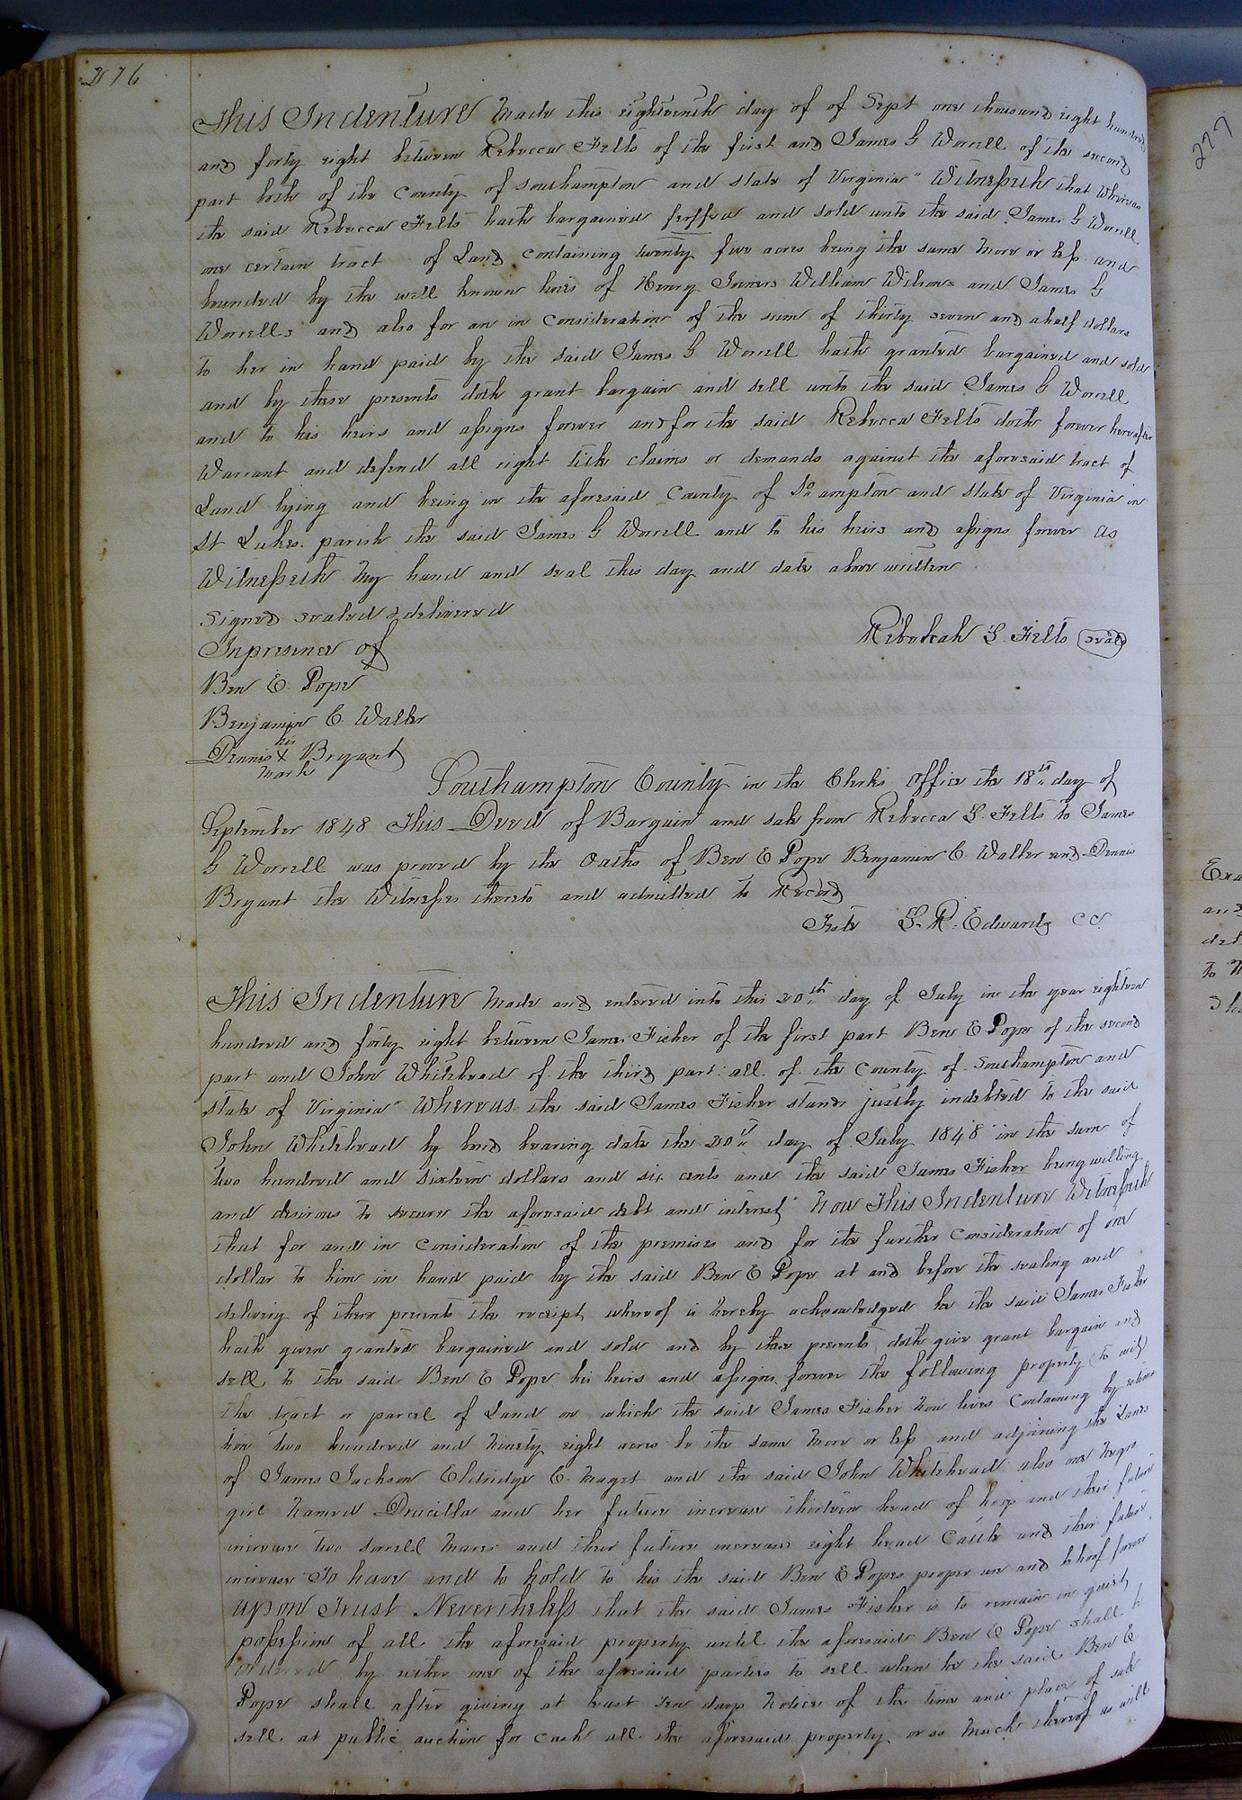 276
This Indenture Made this eighteenth day of of Sept one thousand eight hundred
and forty eight between Rebecca Felts of the first and James G Worrell of the second
part both of the County of Southampton and state of Virginia" Witnesseth that whereas
the said Rebecca Felts hath bargained feoffed and sold unto the said James G Worrell
one certain tract of Land containing twenty five acres being the same More or less and
bounded by the well known lines of Henry Joiners William Wilsons and James G
Worrells and also for an in Consideration of the sum of thirty seven and a half dollars
to her in hand paid by the said James G Worrell hath granted bargained and sold
and by these presents doth grant bargain and sell unto the said James G Worrell
and to his heirs and assigns forever and for the said Rebecca Felts doth forever hereafter
Warrant and defend all right title claims or demands against the aforesaid tract of
Land lying and being in the aforesaid County of So ampton and State of Virginia in
St Lukes parish the said James G Worrell and to his heirs and assigns forever As
Witnesseth My hand and seal this day and date above written
Signed sealed & delivered
Rebekah S. Felts seal
In presence of
Ben E. Pope
Benjamin C. Waller
his
Dennis X Bryant
mark
Southampton County in the Clerks Office the 18th day of
September 1848 This Deed of Bargain and sale from Rebecca S. Felts to James
G Worrell was proved by the Oaths of Ben E Pope Benjamin C. Waller and Dennis
Bryant the Witnesses thereto and admitted to Record
Teste L. R. Edwards CC.
This Indenture Made and entered into this 20th day of July in the year eighteen
hundred and forty eight between James Fisher of the first part Ben E Pope of the second
part and John Whitehead of the third part all of the County of Southampton and
state of Virginia" Whereas the said James Fisher stands justly indebted to the said
John Whitehead by bond bearing date the 20th day of July 1848 in the sum of
two hundred and sixteen dollars and six cents and the said James Fisher being willing
and desirous to secure the aforesaid debt and interest" Now This Indenture Witnesseth
that for and in consideration of the premises and for the further consideration of one
dollar to him in hand paid by the said Ben E Pope at and before the sealing and
delivery of these presents the receipt whereof is hereby acknowledged he the said James Fisher
hath given granted bargained and sold and by these presents doth give grant bargain and
sell to the said Ben E Pope his heirs and assigns forever the following property (to wit)
the tract or parcel of Land on which the said James Fisher now lives Containing by estima
tion two hundred and Ninety eight acres be the same More or less and adjoining the Lands
of James Jackson Eldridge C. Maget and the said John Whitehead also one Negro
girl Named Drucilla and her future increase thirteen head of hogs and their future
increase two sorrell Mares and their future increase eight head Cattle and their future
increase To have and to hold to his the said Ben E Popes proper use and behoof forever
upon Trust Nevertheless that the said James Fisher is to remain in quiet
possession of all the aforesaid property until the aforesaid Ben E Pope shall be
ordered by either one of the aforesaid parties to sell when he the said Ben E
Pope shall after giving at least ten days Notice of the time and place of sale
sell at public auction for cash all the aforesaid property or so Much thereof as will
277
and
to